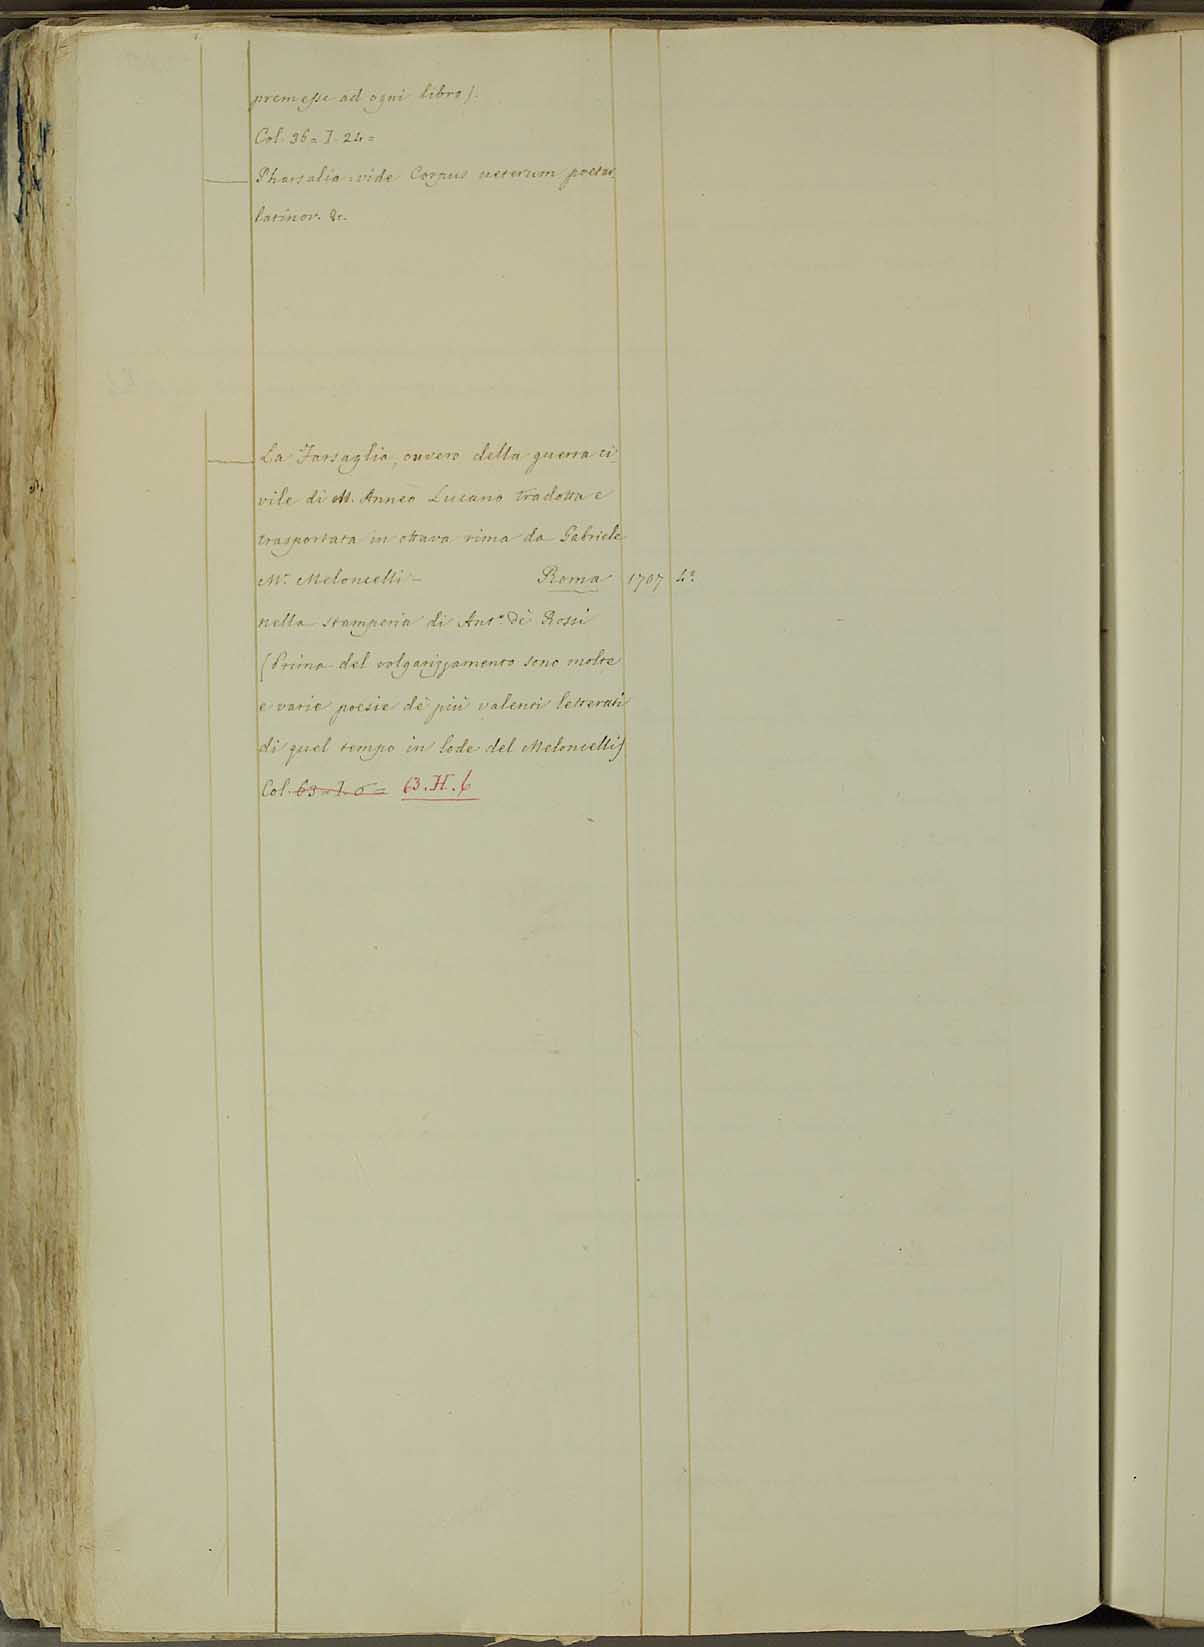 premesse ad ogni libro).
Col. 36 = I. 24 =
— Pharsalia: vide Corpus veterum poetar.
latinor. &c.
— La Farsaglia, ouvero della guerra ci-
vile di M. Anneo Lucano tradotta e
trasportata in ottava rima da Gabriele
M.ᵃ Meloncelli – Roma 1707 4.º
nella stamperia di Ant.º de' Rossi
(Prima del volgarizzamento sono molte
e varie poesie de' più valenti letterati
di quel tempo in lode del Meloncelli)
Col. 63 = I. 6 = 63. H. 6